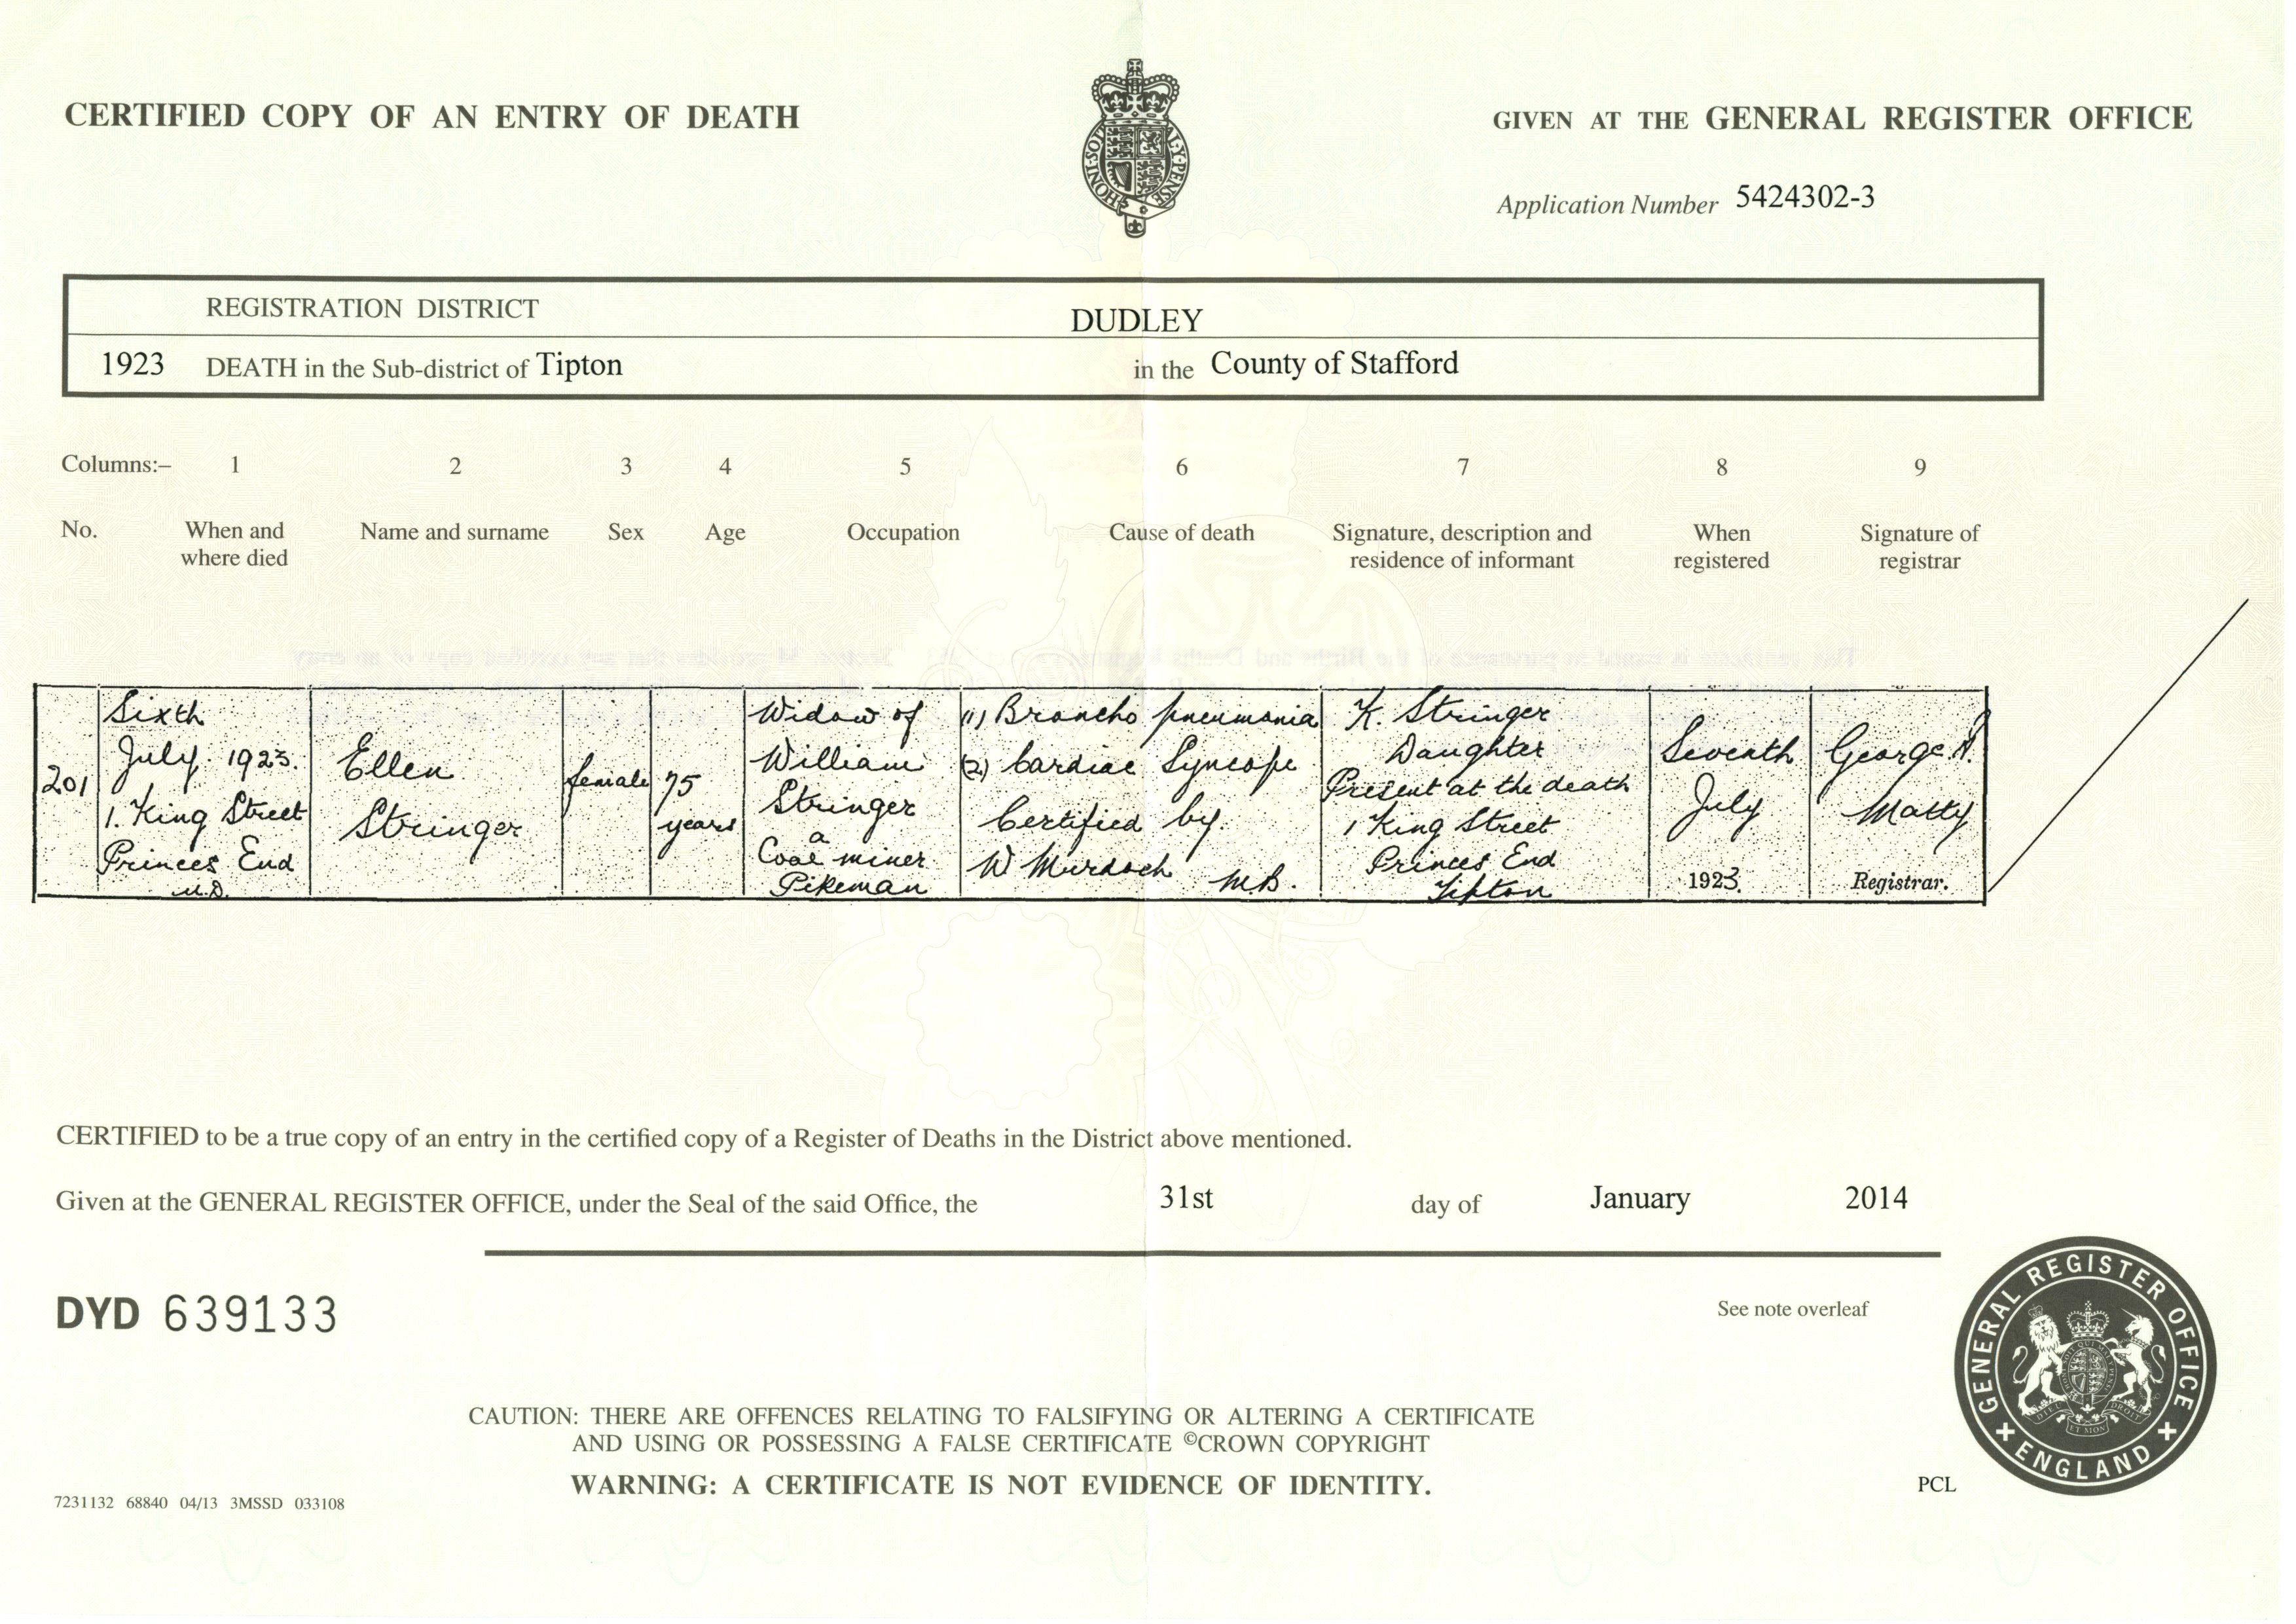 CERTIFIED COPY OF AN ENTRY OF DEATH
GIVEN AT THE GENERAL REGISTER OFFICE
HONI·SOIT
AL·Y·PENSE
Application Number 5424302-3
REGISTRATION DISTRICT DUDLEY
1923 DEATH in the Sub-district of Tipton in the County of Stafford
Columns:– 1 2 3 4 5 6 7 8 9
No.
When and
where died
Name and surname
Sex
Age
Occupation
Cause of death
Signature, description and
residence of informant
When
registered
Signature of
registrar
201
Sixth
July 1923.
1. King Street
Princes End
U.D.
Ellen
Stringer
female
75
years
Widow of
William
Stringer
a
Coal miner
Pikeman
(1) Broncho pneumonia
(2) Cardiac Syncope
Certified by.
W Murdoch M.B.
K. Stringer
Daughter
Present at the death
1 King Street
Princes End
Tipton
Seventh
July
1923.
George A.
Matty
Registrar.
CERTIFIED to be a true copy of an entry in the certified copy of a Register of Deaths in the District above mentioned.
Given at the GENERAL REGISTER OFFICE, under the Seal of the said Office, the 31st day of January 2014
DYD 639133
See note overleaf
GENERAL REGISTER OFFICE
ENGLAND
DIEU ET MON DROIT
CAUTION: THERE ARE OFFENCES RELATING TO FALSIFYING OR ALTERING A CERTIFICATE
AND USING OR POSSESSING A FALSE CERTIFICATE ©CROWN COPYRIGHT
WARNING: A CERTIFICATE IS NOT EVIDENCE OF IDENTITY.
PCL
7231132 68840 04/13 3MSSD 033108